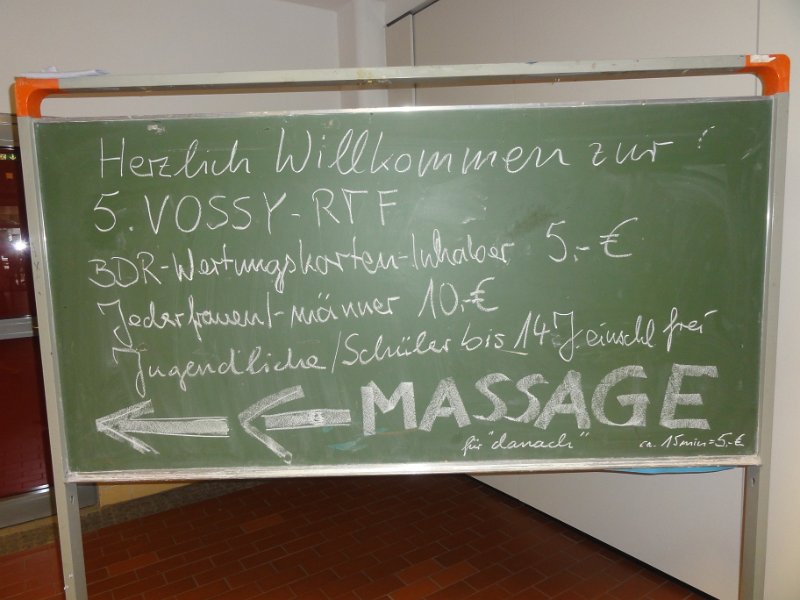 Herzlich Willkommen zur
5. VOSSY-RTF
BDR-Wertungskarten-Inhaber 5,- €
Jederfrauen/-männer 10,-€
Jugendliche/Schüler bis 14 J. einschl frei
MASSAGE
für "danach" ca. 15min=5,-€